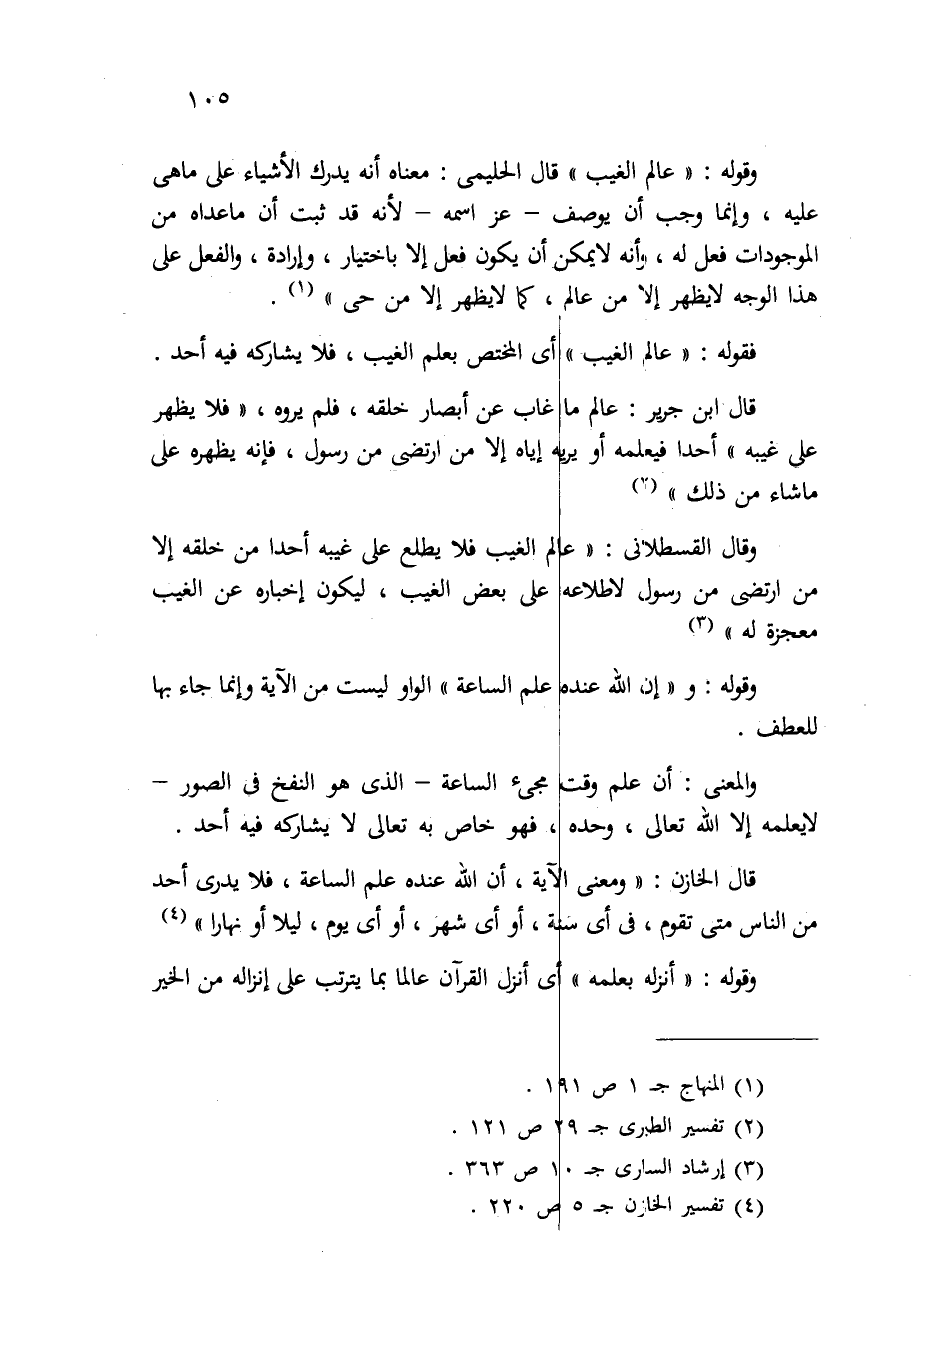 ١٠٥
وقوله : « عالم الغيب » قال الحليمى : معناه أنه يدرك الأشياء على ماهى
عليه ، وإنما وجب أن يوصف – عز اسمه – لأنه قد ثبت أن ماعداه من
الموجودات فعل له ، وأنه لايمكن أن يكون فعل إلا باختيار ، وإرادة ، والفعل على
هذا الوجه لايظهر إلا من عالم ، كما لايظهر إلا من حى » (١) .
فقوله : « عالم الغيب » أى المختص بعلم الغيب ، فلا يشاركه فيه أحد .
قال ابن جرير : عالم ما غاب عن أبصار خلقه ، فلم يروه ، « فلا يظهر
على غيبه » أحدا فيعلمه أو يريه إياه إلا من ارتضى من رسول ، فإنه يظهره على
ماشاء من ذلك » (٢)
وقال القسطلانى : « عالم الغيب فلا يطلع على غيبه أحدا من خلقه إلا
من ارتضى من رسول لاطلاعه على بعض الغيب ، ليكون إخباره عن الغيب
معجزة له » (٣)
وقوله : و « إن الله عنده علم الساعة » الواو ليست من الآية وإنما جاء بها
للعطف .
والمعنى : أن علم وقت مجىء الساعة – الذى هو النفخ فى الصور –
لايعلمه إلا الله تعالى ، وحده ، فهو خاص به تعالى لا يشاركه فيه أحد .
قال الخازن : « ومعنى الآية ، أن الله عنده علم الساعة ، فلا يدرى أحد
من الناس متى تقوم ، فى أى سنة ، أو أى شهر ، أو أى يوم ، ليلا أو نهارا » (٤)
وقوله : « أنزله بعلمه » أى أنزل القرآن عالما بما يترتب على إنزاله من الخير
(١) المنهاج جـ ١ ص ١٩١ .
(٢) تفسير الطبرى جـ ٢٩ ص ١٢١ .
(٣) إرشاد السارى جـ ١٠ ص ٣٦٣ .
(٤) تفسير الخازن جـ ٥ ص ٢٢٠ .